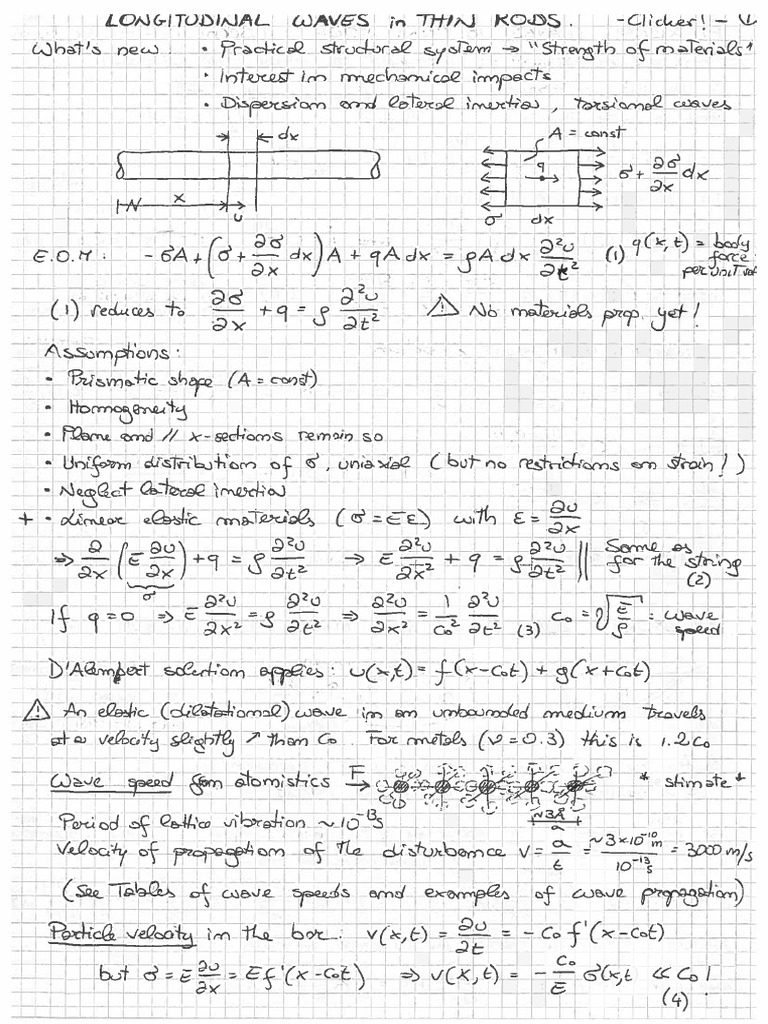 LONGITUDINAL WAVES in THIN RODS. - Clicker! -
What's new: • Practical structural system → "Strength of materials"
• Interest in mechanical impacts
• Dispersion and lateral inertia, torsional waves
dx
A = const
q
σ + ∂σ/∂x dx
x
u
σ dx
E.O.M: -σA + (σ + ∂σ/∂x dx) A + qA dx = ρA dx ∂²u/∂t² (1) q(x,t) = body force per unit vol
(1) reduces to ∂σ/∂x + q = ρ ∂²u/∂t² ⚠ No materials prop. yet!
Assumptions:
• Prismatic shape (A = const)
• Homogeneity
• Plane and // x-sections remain so
• Uniform distribution of σ, uniaxial (but no restrictions on strain!)
• Neglect lateral inertia
+ • Linear elastic materials (σ = Eε) with ε = ∂u/∂x
⇒ ∂/∂x (E ∂u/∂x) + q = ρ ∂²u/∂t² → E ∂²u/∂x² + q = ρ ∂²u/∂t² || Same as for the string (2)
σ
If q = 0 ⇒ E ∂²u/∂x² = ρ ∂²u/∂t² ⇒ ∂²u/∂x² = 1/c₀² ∂²u/∂t² (3) c₀ = √E/ρ : wave speed
D'Alembert solution applies: u(x,t) = f(x-c₀t) + g(x+c₀t)
⚠ An elastic (dilatational) wave in an unbounded medium travels
at a velocity slightly ↗ than c₀. For metals (ν = 0.3) this is 1.2c₀
Wave speed from atomistics F → * stimate *
Period of lattice vibration ~10⁻¹³s ~3Å
a
Velocity of propagation of the disturbance v = a/t = ~3×10⁻¹⁰m/10⁻¹³s = 3000 m/s
(See Tables of wave speeds and examples of wave propagation)
Particle velocity in the bar: v(x,t) = ∂u/∂t = -c₀ f'(x-c₀t)
but σ = E ∂u/∂x = Ef'(x-c₀t) ⇒ v(x,t) = - c₀/E σ(x,t ≪ c₀!
(4)